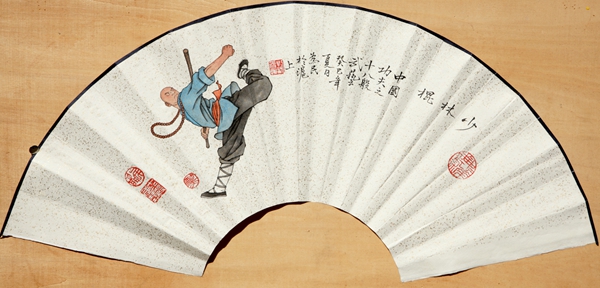 少林棍
中國
功夫之
十八般
武藝
癸巳年
夏日
於滬
上